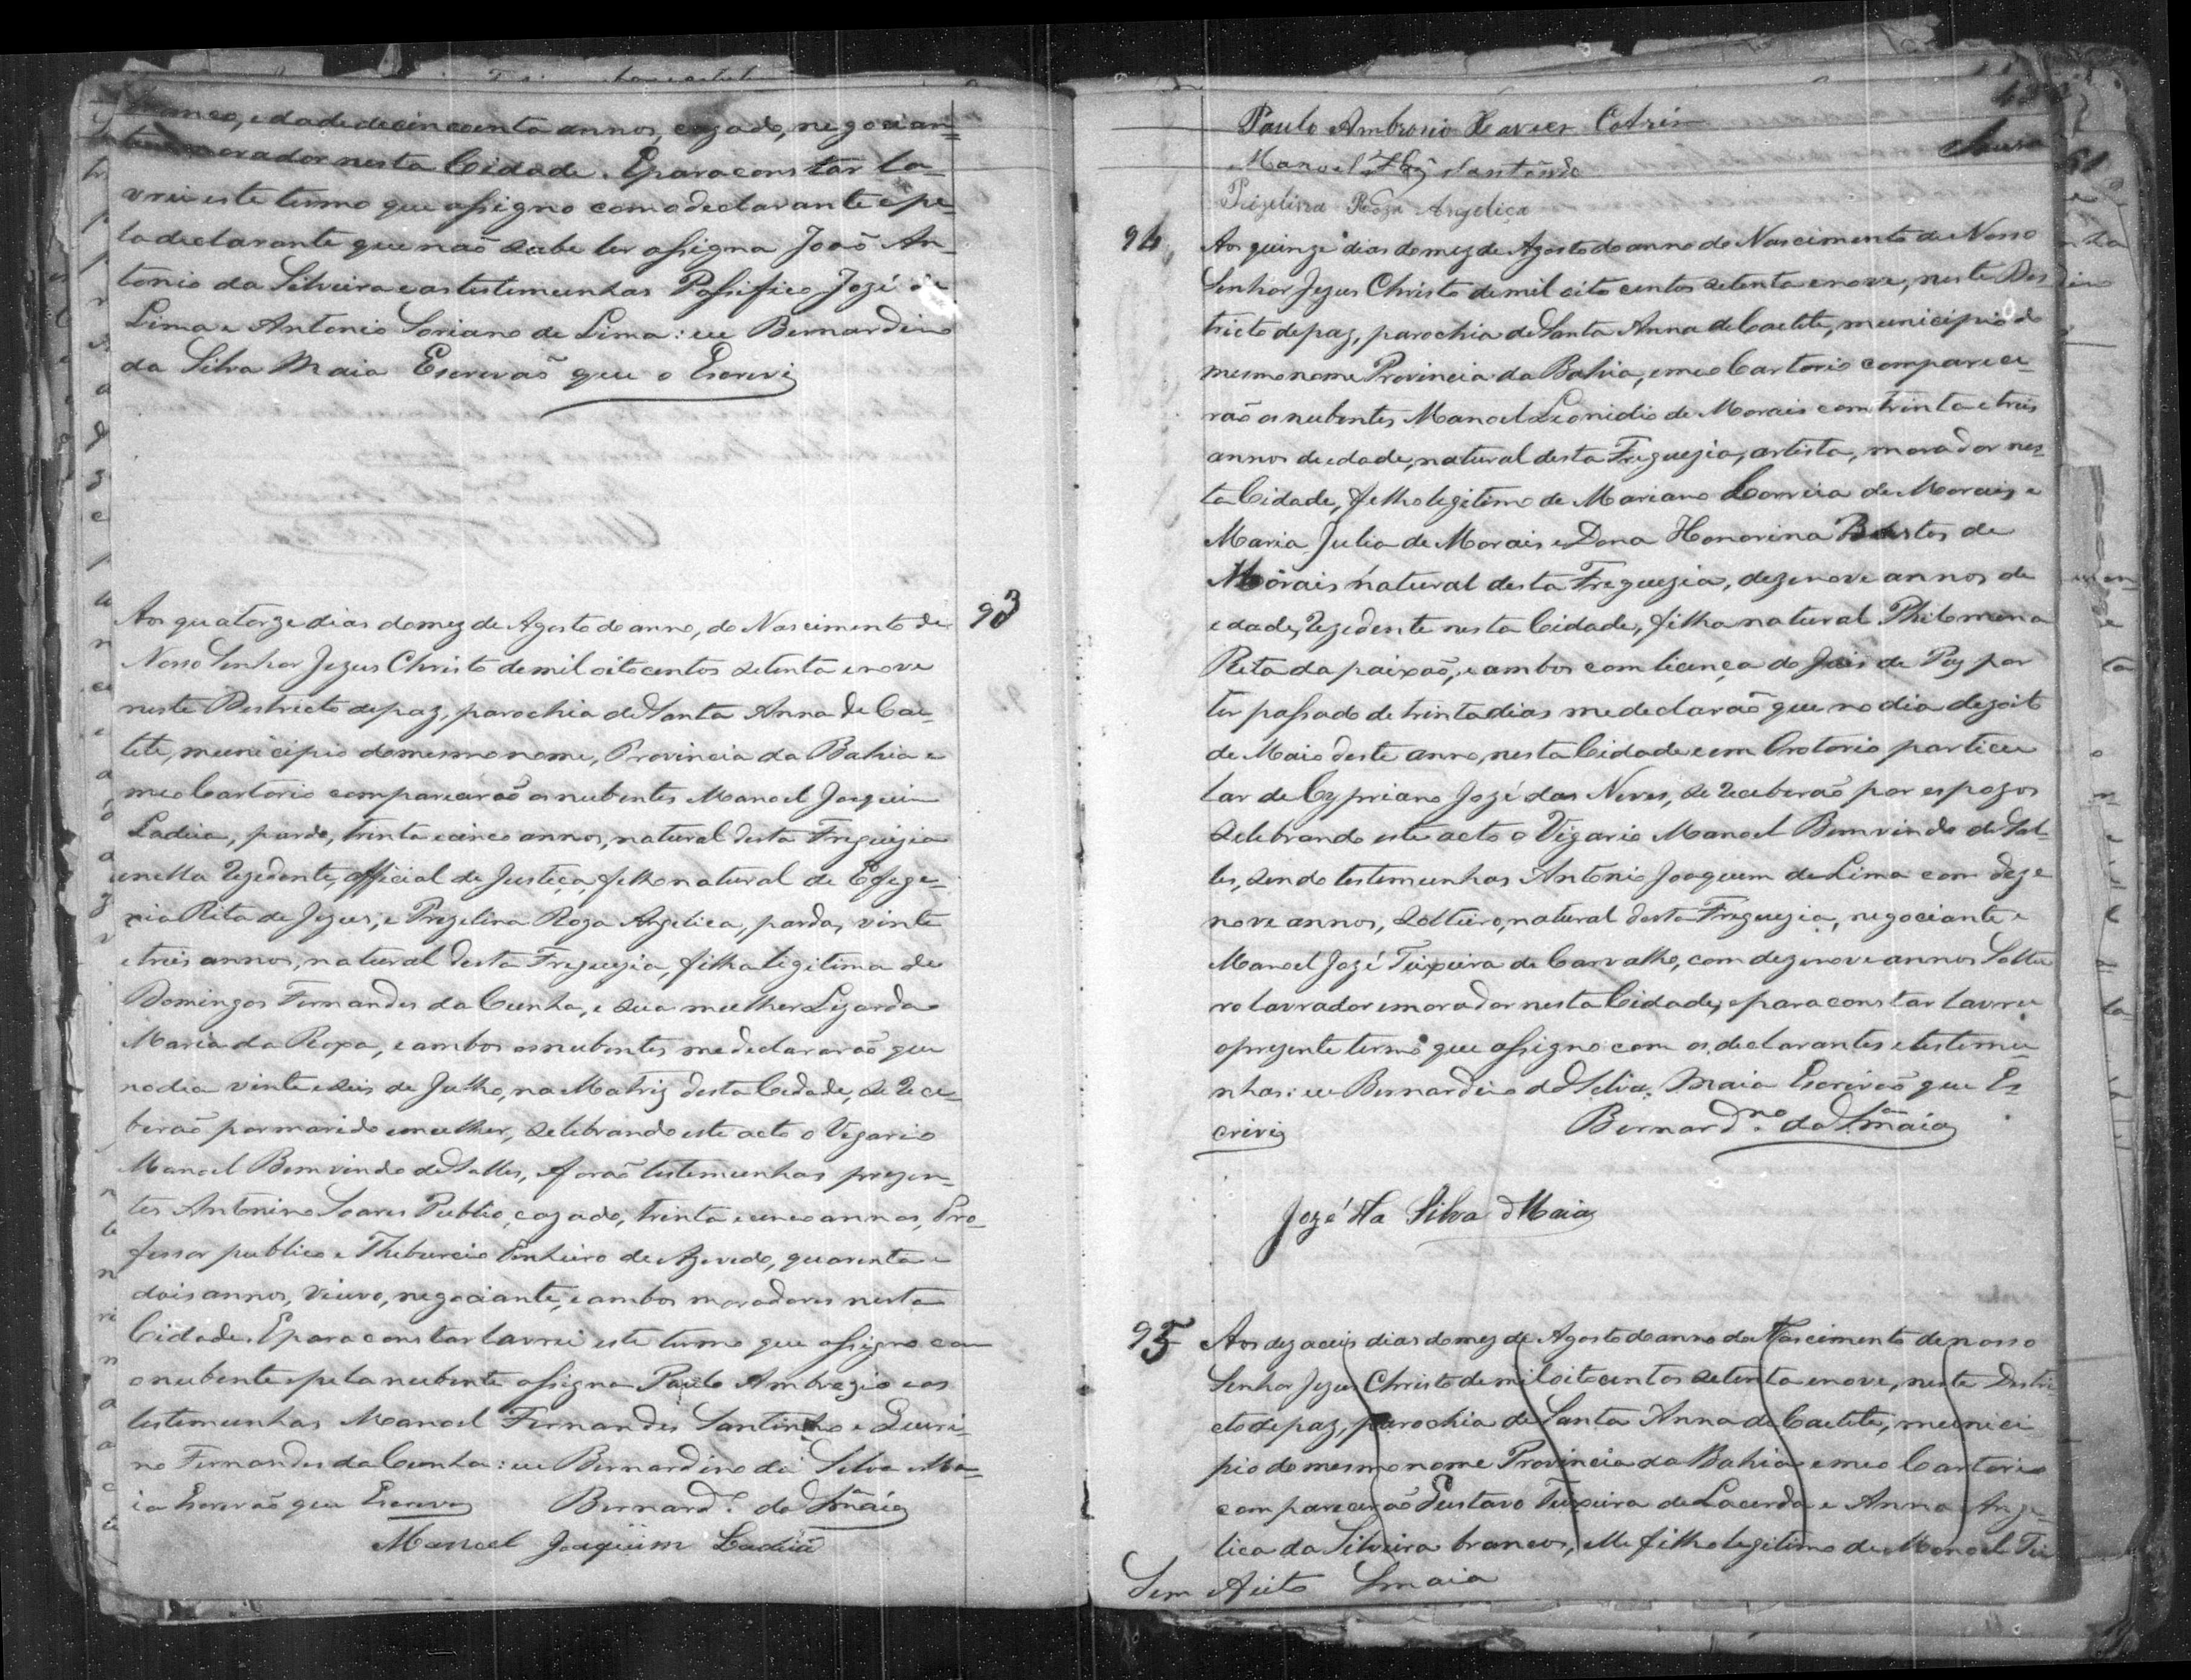 branco, edade de cincoenta annos, cazado, negocian=
te morador nesta Cidade. E para constar la=
vrei este termo que assigno com o declarante e pe=
la declarante que não sabe ler assigna João An=
tonio da Silveira e as testemunhas Passifico José de
Lima e Antonio Soriano de Lima: eu Bernardino
da Silva Maia Escrivaõ que o Escrevi
93
Aos quatorze dias do mez de Agosto do anno, do Nascimento de
Nosso Senhor Jezus Christo de mil oitocentos setenta e nove
neste Destricto de paz, parochia de Santa Anna de Cae=
tete, municipio do mesmo nome, Provincia da Bahia e
meo Cartorio comparecerão os nubentes Manoel Joaquim
Ladeia, pardo, trinta e cinco annos, natural desta Freguezia
e nella rezedente, official de Justiça, filho natural de Efege=
nia Rita de Jezus, e Prezelina Roza Angelica, parda, vinte
e treis annos, natural desta Freguezia, filha legitima de
Domingos Fernandes da Cunha, e sua mulher Lizarda
Maria da Roxa, e ambos os nubentes me declararão que
no dia vinte e seis de Julho, na Matriz desta Cidade, se rece=
berão por marido e mulher, selebrando este acto o Vegario
Manoel Bemvindo de Salles, e forão testemunhas prezen=
tes Antonino Soares Publio, cazado, trinta e cinco annos, Pro=
fessor publico e Theburcio Pinheiro de Azevedo, quarenta e
dois annos, viuvo, negociante, e ambos moradores nesta
Cidade. E para constar lavrei este termo que assigno com
o nubente e pela nubente assigna Paulo Ambrozio e as
testemunhas Manoel Fernandes Santinho e Quiri=
no Fernandes da Cunha: eu Bernardino da Silva Ma=
ia Escrivão que Escrevy Bernard.º da S.ª Maia
Manoel Joaquim Ladeia
Paulo Ambrosio Xavier Cotrin
Manoel Fz Santinho
Prizelina Roza Angelica
94
Aos quinze dias do mez de Agosto do anno do Nascimento de Nosso
Senhor Jezus Christo de mil oito centos setenta e nove, neste Des=
tricto de paz, parochia de Santa Anna de Caetete, municipio do
mesmo nome Provincia da Bahia, e meo Cartorio comparece=
rão os nubentes Manoel Leonidio de Morais com trinta e treis
annos de edade, natural desta Freguezia, artista, morador nes=
ta Cidade, filho legitimo de Mariano Correia de Morais e
Maria Julia de Morais e Dona Honorina Bastos de
Morais natural desta Freguezia, dezenove annos de
edade, rezedente nesta Cidade, filha natural Philomena
Rita da paixaõ, e ambos com licença do Juis de Paz por
ter passado de trinta dias me declaraõ que no dia dezoito
de Maio deste anno, nesta Cidade e em Oratorio particu
lar de Cypriano Jozé das Neves, se receberão por espozos
selebrando este acto o Vigario Manoel Bemvindo de Sal=
les, sendo testemunhas Antonio Joaquim de Lima com deze
nove annos, solteiro, natural desta Freguezia, negociante e
Manoel Jozé Teixeira de Carvalho, com dezenove annos Soltei
ro lavrador e morador nesta Cidade, e para constar lavrei
o prezente termo que assigno com os declarantes e testemu=
nhas: eu Bernardino da Silva Maia Escrivão que Es=
crevi Bernard.no da S.ª Maia
Jozé da Silva Maia
95
Aos dezaceis dias do mez de Agosto do anno do Nascimento de nosso
Senhor Jezus Christo de mil oitocentos setenta e nove, neste Destri
cto de paz, parochia de Santa Anna de Caetete, munici
pio do mesmo nome Provincia da Bahia e meo Cartorio
comparecerão Gustavo Teixeira de Lacerda e Anna Ange=
lica da Silveira brancos, elle filho legitimo de Manoel Tei
Sem Efeito SMaia